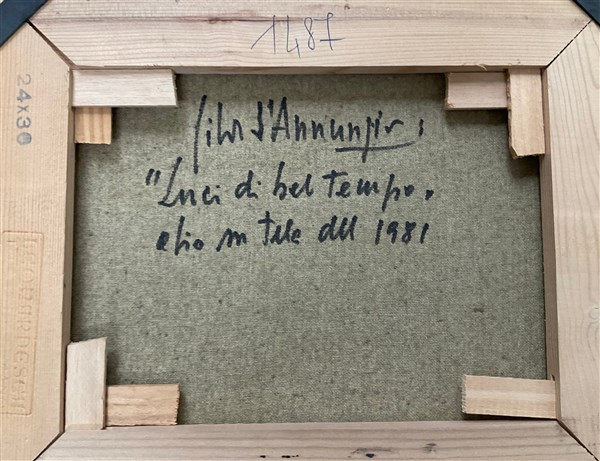 1487
24x30
d'Annunzio:
"Luci di bel tempo"
olio su tela del 1981